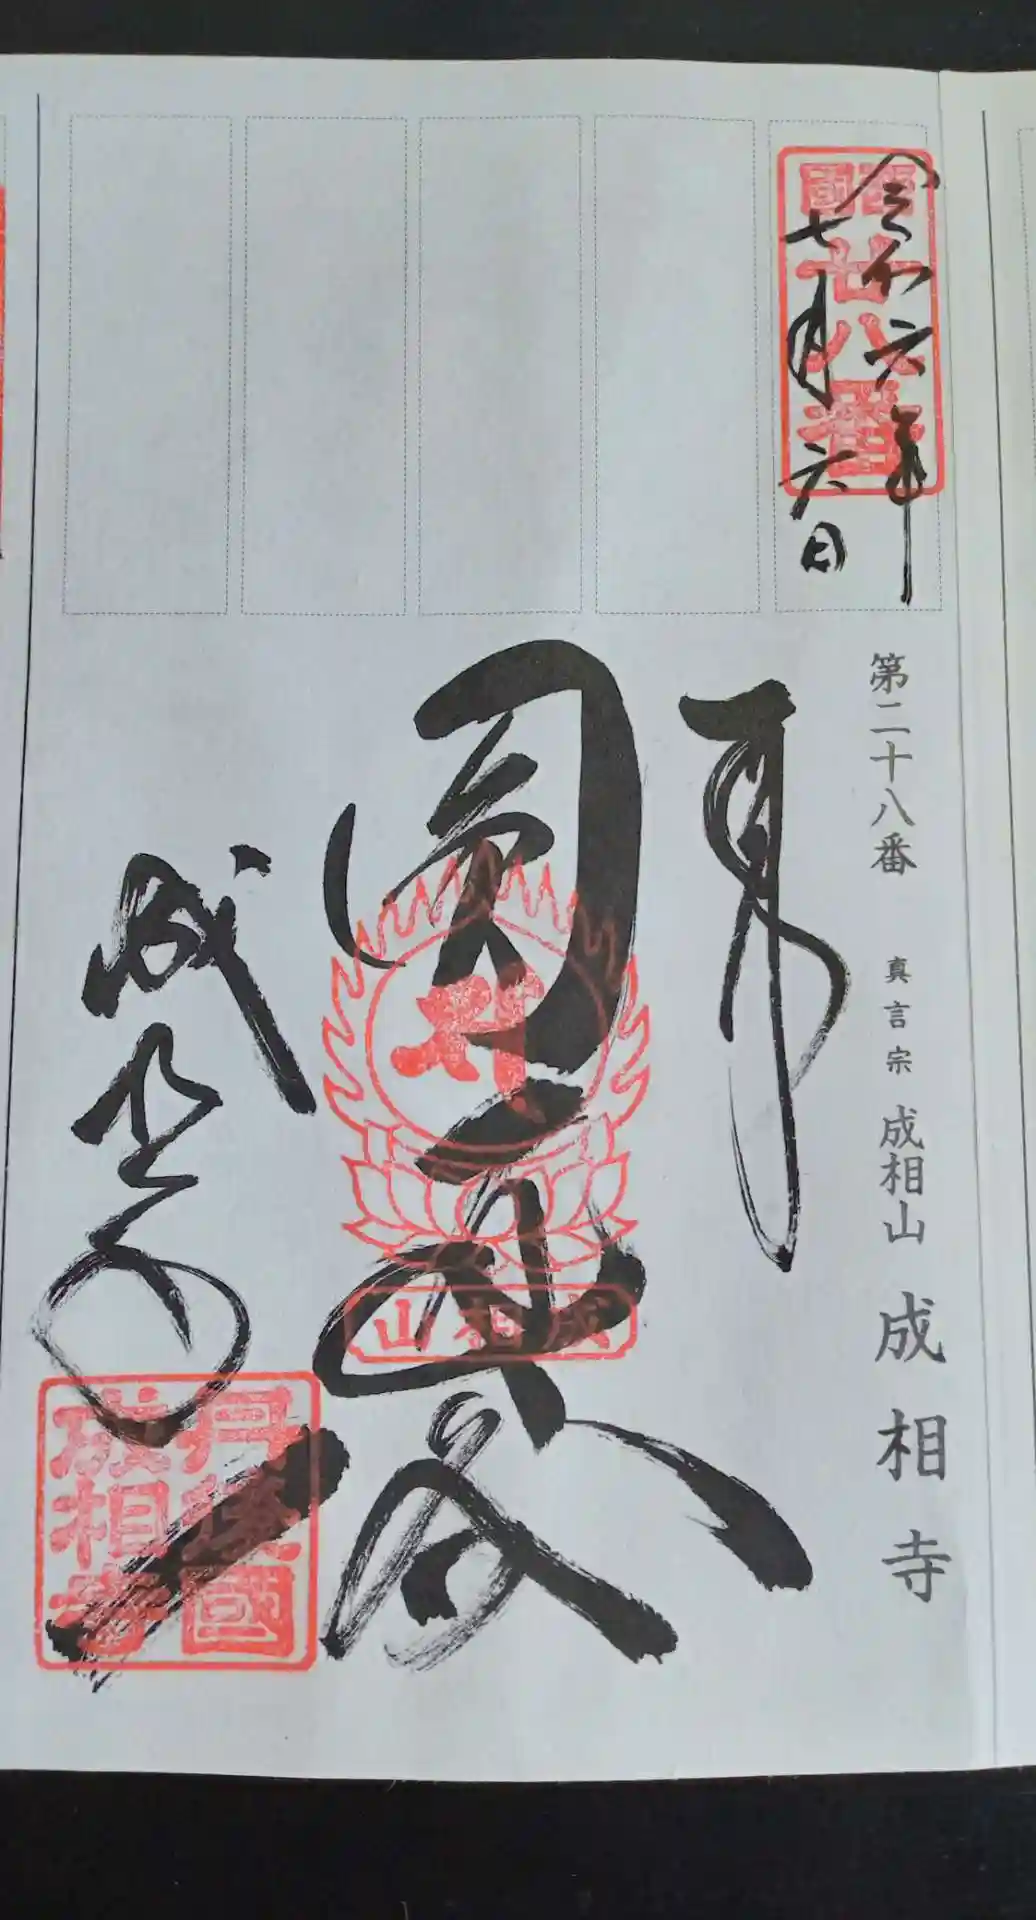 令和六年
七月六日
西國
廿八番
第二十八番 真言宗 成相山 成相寺
奉拝
圓通殿
成相寺
成相山
丹後國
成相寺